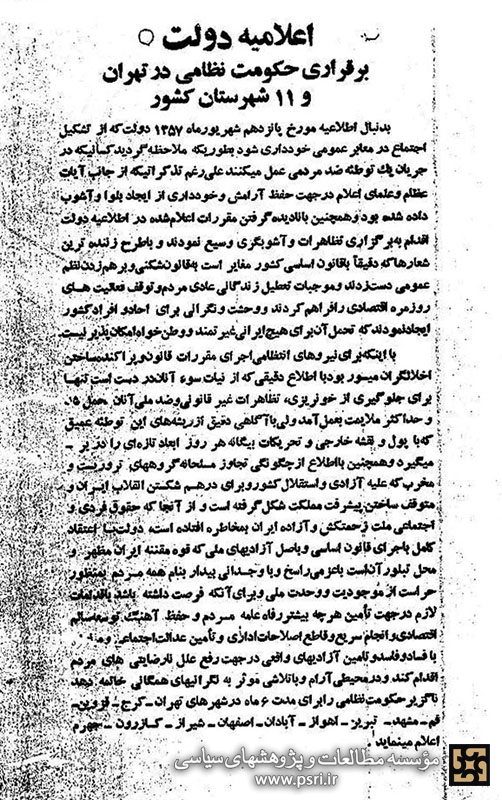 اعلامیه دولت
برقراری حکومت نظامی در تهران
و ۱۱ شهرستان کشور
بدنبال اطلاعیه مورخ پانزدهم شهریورماه ۱۳۵۷ دولت که از تشکیل
اجتماع در معابر عمومی خودداری شود بطوریکه ملاحظه گردید کسانیکه در
جریان یك توطئه ضد مردمی عمل میکنند علی رغم تذکراتیکه از جانب آیات
عظام و علمای اعلام در جهت حفظ آرامش و خودداری از ایجاد بلوا و آشوب
داده شده بود و همچنین با نادیده گرفتن مقررات اعلام شده در اطلاعیه دولت
اقدام به برگزاری تظاهرات و آشوبگری وسیع نمودند و با طرح زننده ترین
شعارها که دقیقاً با قانون اساسی کشور مغایر است به قانون شکنی و برهم زدن نظم
عمومی دست زدند و موجبات تعطیل زندگانی عادی مردم و توقف فعالیت های
روزمره اقتصادی را فراهم کردند و وحشت و نگرانی برای احاد و افراد کشور
ایجاد نمودند که تحمل آن برای هیچ ایرانی غیرتمند و وطن خواه امکان پذیر نیست.
با اینکه برای نیروهای انتظامی اجرای مقررات قانون و پراکنده ساختن
اخلالگران میسور بود با اطلاع دقیقی که از نیات سوء آنان در دست است تنها
برای جلوگیری از خونریزی، تظاهرات غیر قانونی و ضد ملی آنان تحمل شد
و حداکثر ملایمت بعمل آمد ولی با آگاهی دقیق از ریشه های این توطئه عمیق
که با پول و نقشه خارجی و تحریکات بیگانه هر روز ابعاد تازه ای را در بر ـ
میگیرد و همچنین با اطلاع از چگونگی تجاوز مسلحانه گروههای تروریست و
مخرب که علیه آزادی و استقلال کشور و برای درهم شکستن انقلاب ایران و
متوقف ساختن پیشرفت مملکت شکل گرفته است و از آنجا که حقوق فردی و
اجتماعی ملت زحمتکش و آزاده ایران بمخاطره افتاده است، دولت با اعتقاد
کامل باجرای قانون اساسی و باصل آزادیهای ملی که قوه مقننه ایران مظهر و
محل تبلور آن است با عزمی راسخ و با وجدانی بیدار بنام همه مردم بمنظور
حراست از موجودیت و وحدت ملی و برای آنکه فرصت داشته باشد با اقدامات
لازم در جهت تأمین هرچه بیشتر رفاه عامه مردم و حفظ آهنگ توسعه سالم
اقتصادی و انجام سریع و قاطع اصلاحات اداری و تأمین عدالت اجتماعی و
با فساد و فاسد و تامین آزادیهای واقعی در جهت رفع علل نارضایتی های مردم
اقدام کند و در محیطی آرام و با تلاشی موثر به نگرانیهای همگانی خاتمه دهد
ناگزیر حکومت نظامی را برای مدت ۶ ماه در شهرهای تهران ـ کرج ـ قزوین ـ
قم ـ مشهد ـ تبریز ـ اهواز ـ آبادان ـ اصفهان ـ شیراز ـ کازرون ـ جهرم
اعلام مینماید.
مؤسسه مطالعات و پژوهشهای سیاسی
www.psri.ir